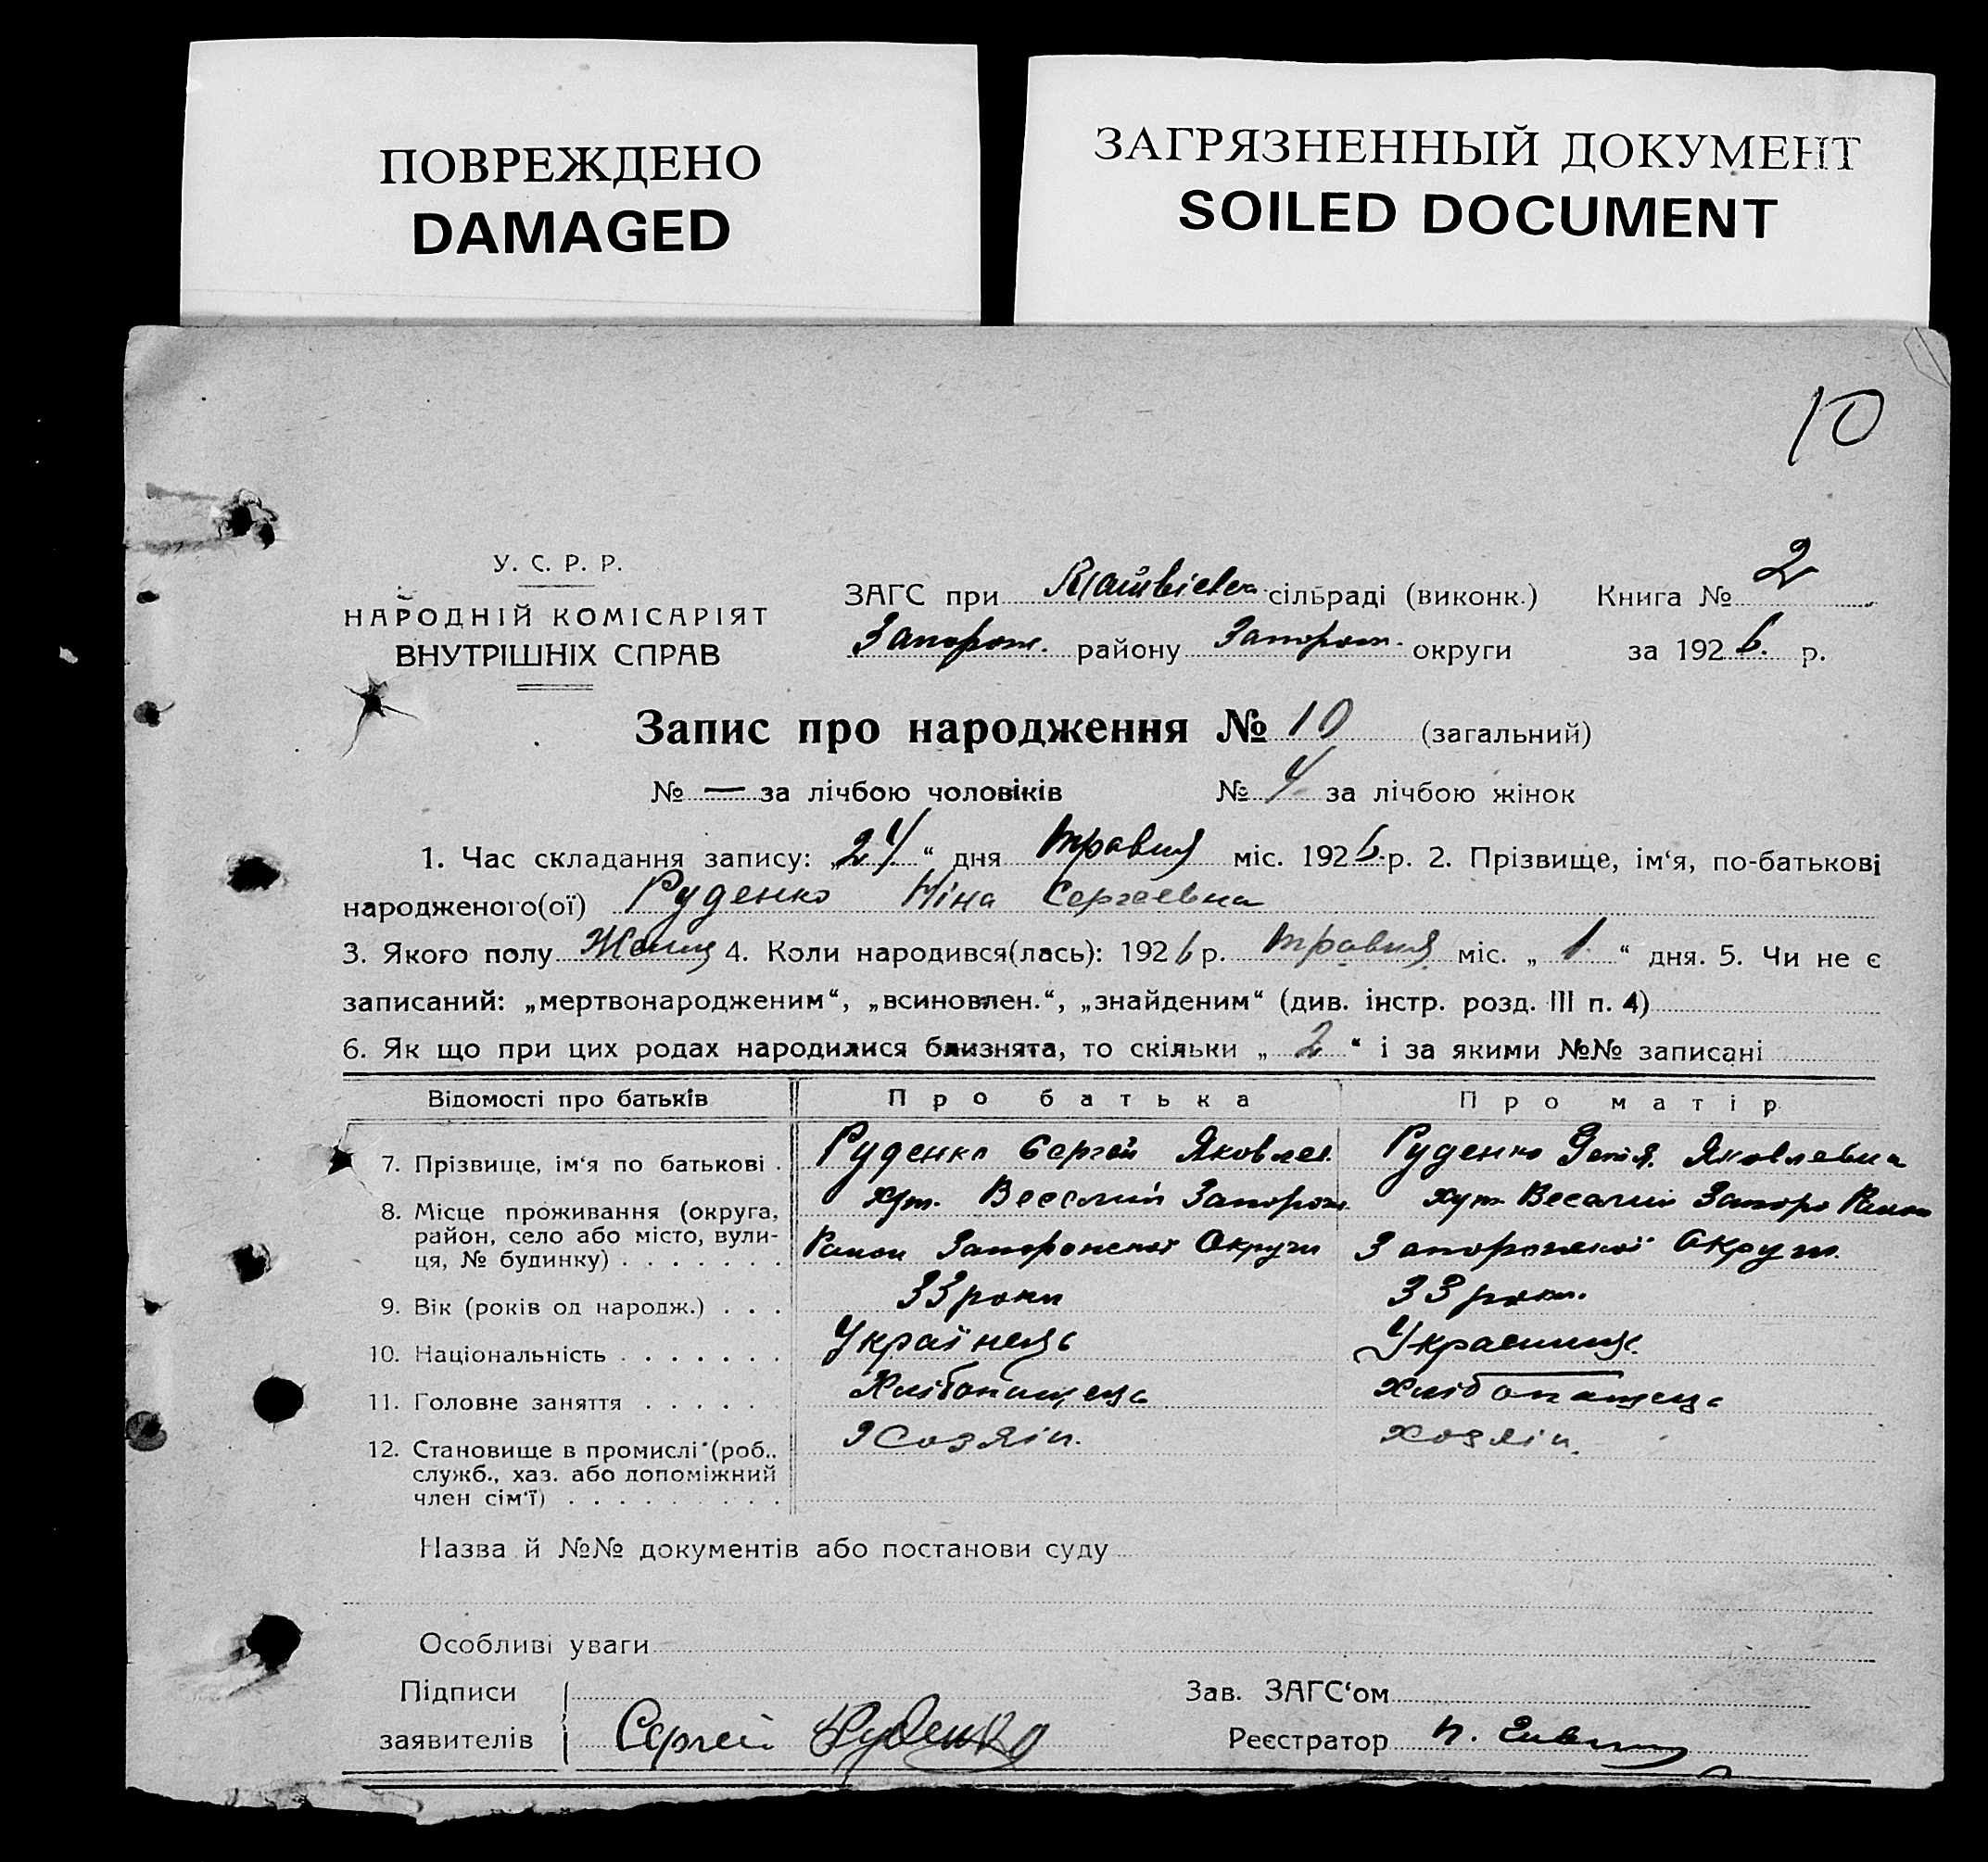 ПОВРЕЖДЕНО
DAMAGED
ЗАГРЯЗНЕННЫЙ ДОКУМЕНТ
SOILED DOCUMENT
10
У. С. Р. Р.
НАРОДНІЙ КОМІСАРІЯТ
ВНУТРІШНІХ СПРАВ
ЗАГС при сільраді (виконк.) Книга № 2
Запорож. району Запорож. округи за 1926. р.
Запис про народження № 10 (загальний)
№ — за лічбою чоловіків № 4 за лічбою жінок
1. Час складання запису: „24“ дня травня міс. 1926.р. 2. Прізвище, ім‘я, по-батькові
народженого(ої) Руденко Ніна Сергеевна
3. Якого полу 4. Коли народився(лась): 1926 р. травня міс. „1.“ дня. 5. Чи не є
записаний: „мертвонародженим“, „всиновлен.“, „знайденим“ (див. інстр. розд. III п. 4)
6. Як що при цих родах народилися близнята, то скільки „2“ і за якими №№ записані
Відомості про батьків Про батька Про матір
7. Прізвище, ім‘я по батькові . Руденко Сергей Яковлев. Руденко Яковлевна
8. Місце проживання (округа, хут. Веселий Запорож. хут. Веселий Запоро Район
район, село або місто, вули- Район Запорожской Округи Запорожской Округи.
ця, № будинку) . . . . . . .
9. Вік (років од народж.) . . . 33 роки 33 роки.
10. Національність . . . . . . . Українець Украениця
11. Головне заняття . . . . . . Хлібопашець Хлібопашець
12. Становище в промислі (роб., Хозяін. Хозяін.
служб., хаз. або допоміжний
член сім‘ї) . . . . . . . . . .
Назва й №№ документів або постанови суду
Особливі уваги
Підписи Зав. ЗАГС‘ом
заявителів Сергей Руденко Реєстратор